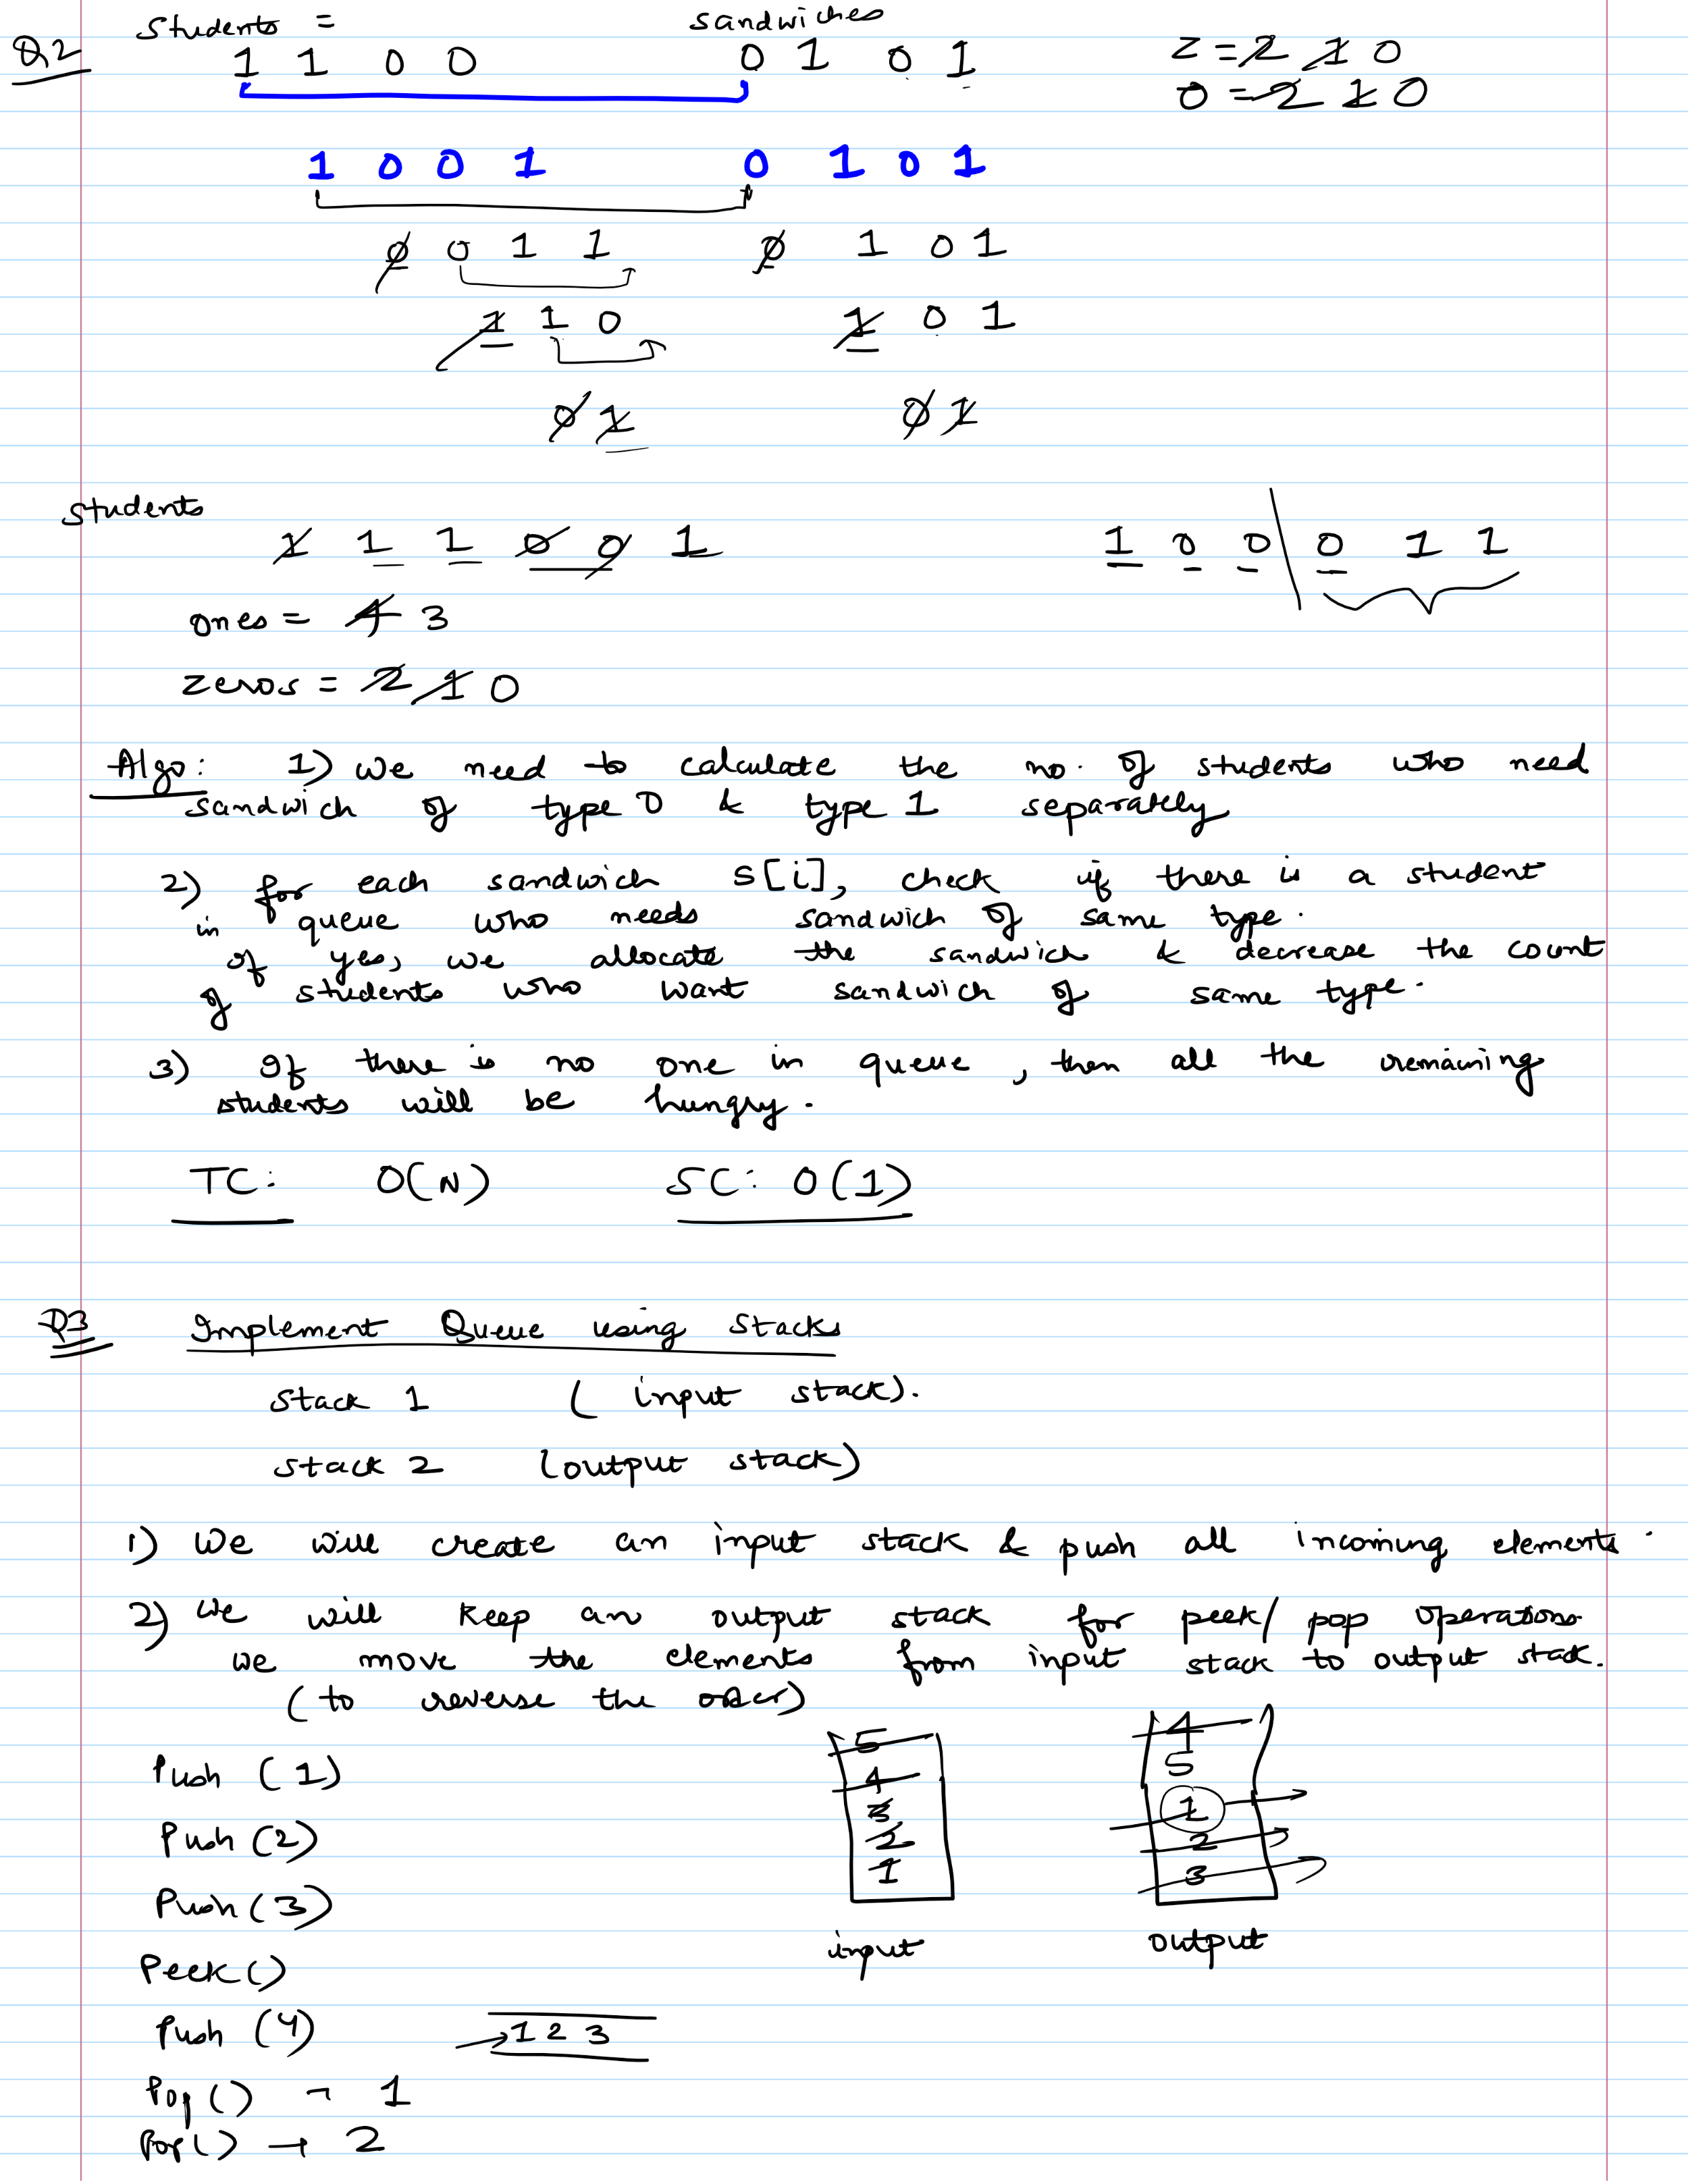 Q2 students = sandwiches
1 1 0 0 0 1 0 1 z = 2 1 0
0 = 2 1 0
1 0 0 1 0 1 0 1
0 0 1 1 0 1 0 1
1 1 0 1 0 1
0 1 0 1
students
1 1 1 0 0 1 1 0 0 0 1 1
ones = 4 3
zeros = 2 1 0
Algo: 1) we need to calculate the no. of students who need
sandwich of type 0 & type 1 separately
2) for each sandwich s[i], check if there is a student
in queue who needs sandwich of same type.
If yes, we allocate the sandwich & decrease the count
of students who want sandwich of same type.
3) If there is no one in queue, then all the remaining
students will be hungry.
TC: O(N) SC: O(1)
Q3 Implement Queue using Stacks
Stack 1 (input stack).
Stack 2 (output stack)
1) We will create an input stack & push all incoming elements.
2) We will keep an output stack for peek/pop operations
we move the elements from input stack to output stack.
(to reverse the order)
Push (1)
Push (2)
Push (3)
Peek()
Push (4)
Pop() → 1
Pop() → 2
1 2 3
5
4
3
2
1
input
4
5
1
2
3
output